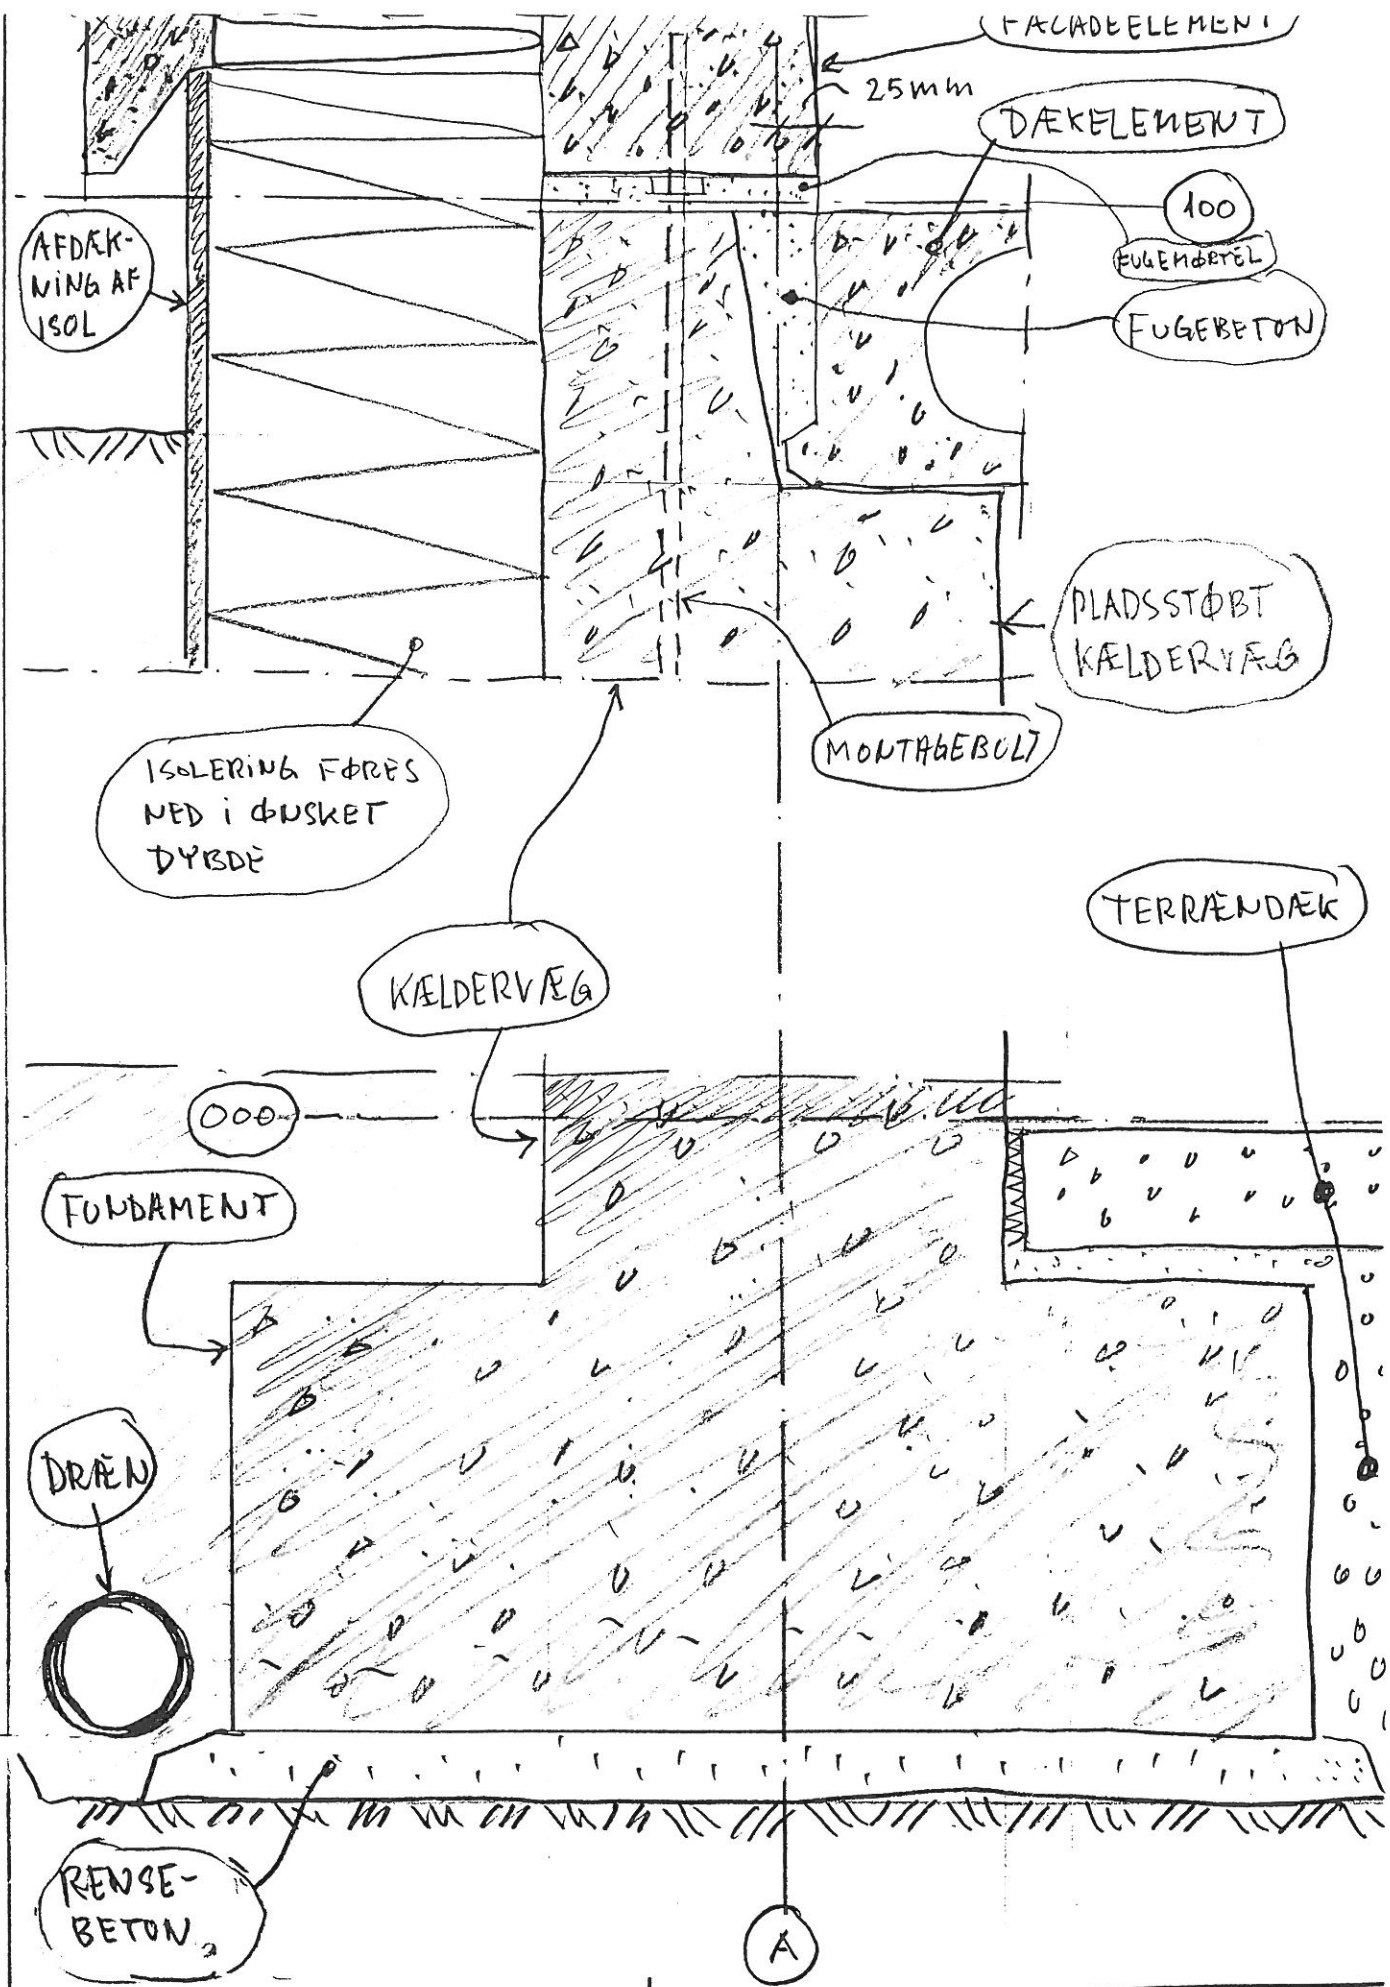 FACADEELEMENT
25mm
DÆKELEMENT
100
FUGEMØRTEL
FUGEBETON
AFDÆK-
NING AF
ISOL
PLADSSTØBT
KÆLDERVÆG
MONTAGEBOLT
ISOLERING FØRES
NED i ØNSKET
DYBDE
TERRÆNDÆK
KÆLDERVÆG
000
FUNDAMENT
DRÆN
RENSE-
BETON
A